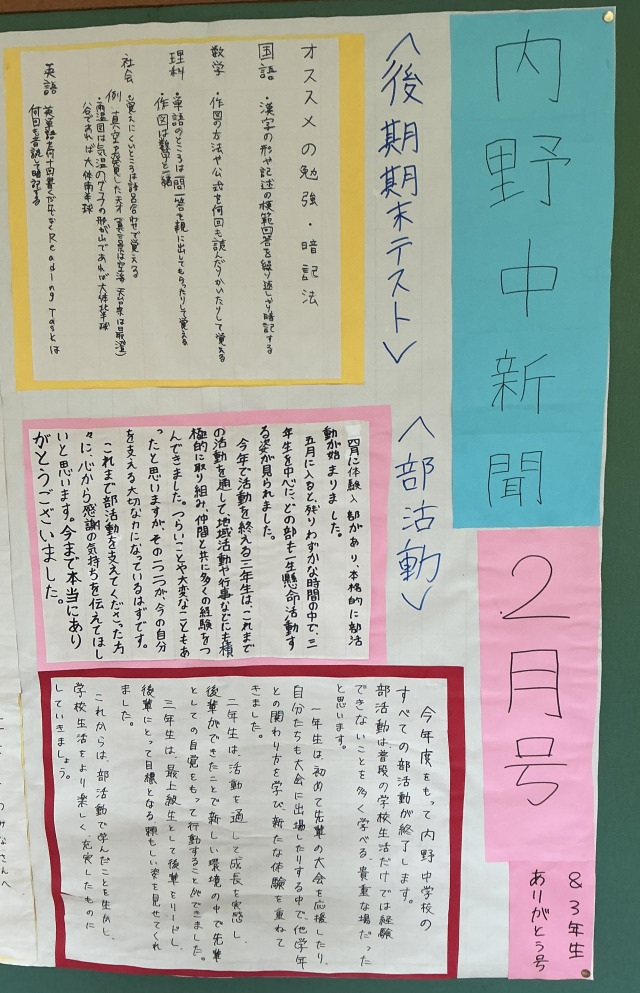 内野中新聞
2月号
&3年生
ありがとう号
〈後期期末テスト〉
オススメの勉強・暗記法
国語・漢字の形や記述の模範回答を繰り返しかり暗記する
数学・作図の方法や公式を何回も読んだりかいたりして覚える
理科・単語のところは一問一答を親に出してもらったりして覚える
・作図は数学と一緒
社会・覚えにくいところは語呂合わせで覚える
例 真・空で発覚した天才(真言宗は空海 天台宗は最澄)
・雨温図は気温のグラフの形が山であれば大体北半球
八谷であれば大体南半球
英語 英単語を何十回書くだけでなくReading Tasとは
何回も音読して暗記する
〈部活動〉
四月に体験入部があり、本格的に部活
動が始まりました。
五月に入ると、残りわずかな時間の中で、三
年生を中心に、どの部も一生懸命活動す
る姿が見られました。
今年で活動を終える三年生は、これまで
の活動を通して、地域活動や行事などにも積
極的に取り組み、仲間と共に多くの経験をつ
んできました。つらいことや大変なこともあ
ったと思いますが、その一つ一つが、今の自分
を支える大切な力になっているはずです。
これまで部活動を支えてくださった方
々に、心から感謝の気持ちを伝えてほし
いと思います。今まで本当にあり
がとうございました。
今年度をもって内野中学校の
すべての部活動が終了します。
部活動は普段の学校生活だけでは経験
できないことを多く学べる、貴重な場だった
と思います。
一年生は、初めて先輩の大会を応援したり、
自分たちも大会に出場したりする中で、他学年
との関わり方を学び、新たな体験を重ねて
きました。
二年生は、活動を通して成長を実感し、
後輩ができたことで新しい環境の中で先輩
としての自覚をもって行動することができました。
三年生は、最上級生として後輩をリードし、
後輩にとって目標となる頼もしい姿を見せてくれ
ました。
これからは、部活動で学んだことを生かし、
学校生活をより楽しく、充実したものに
していきましょう。